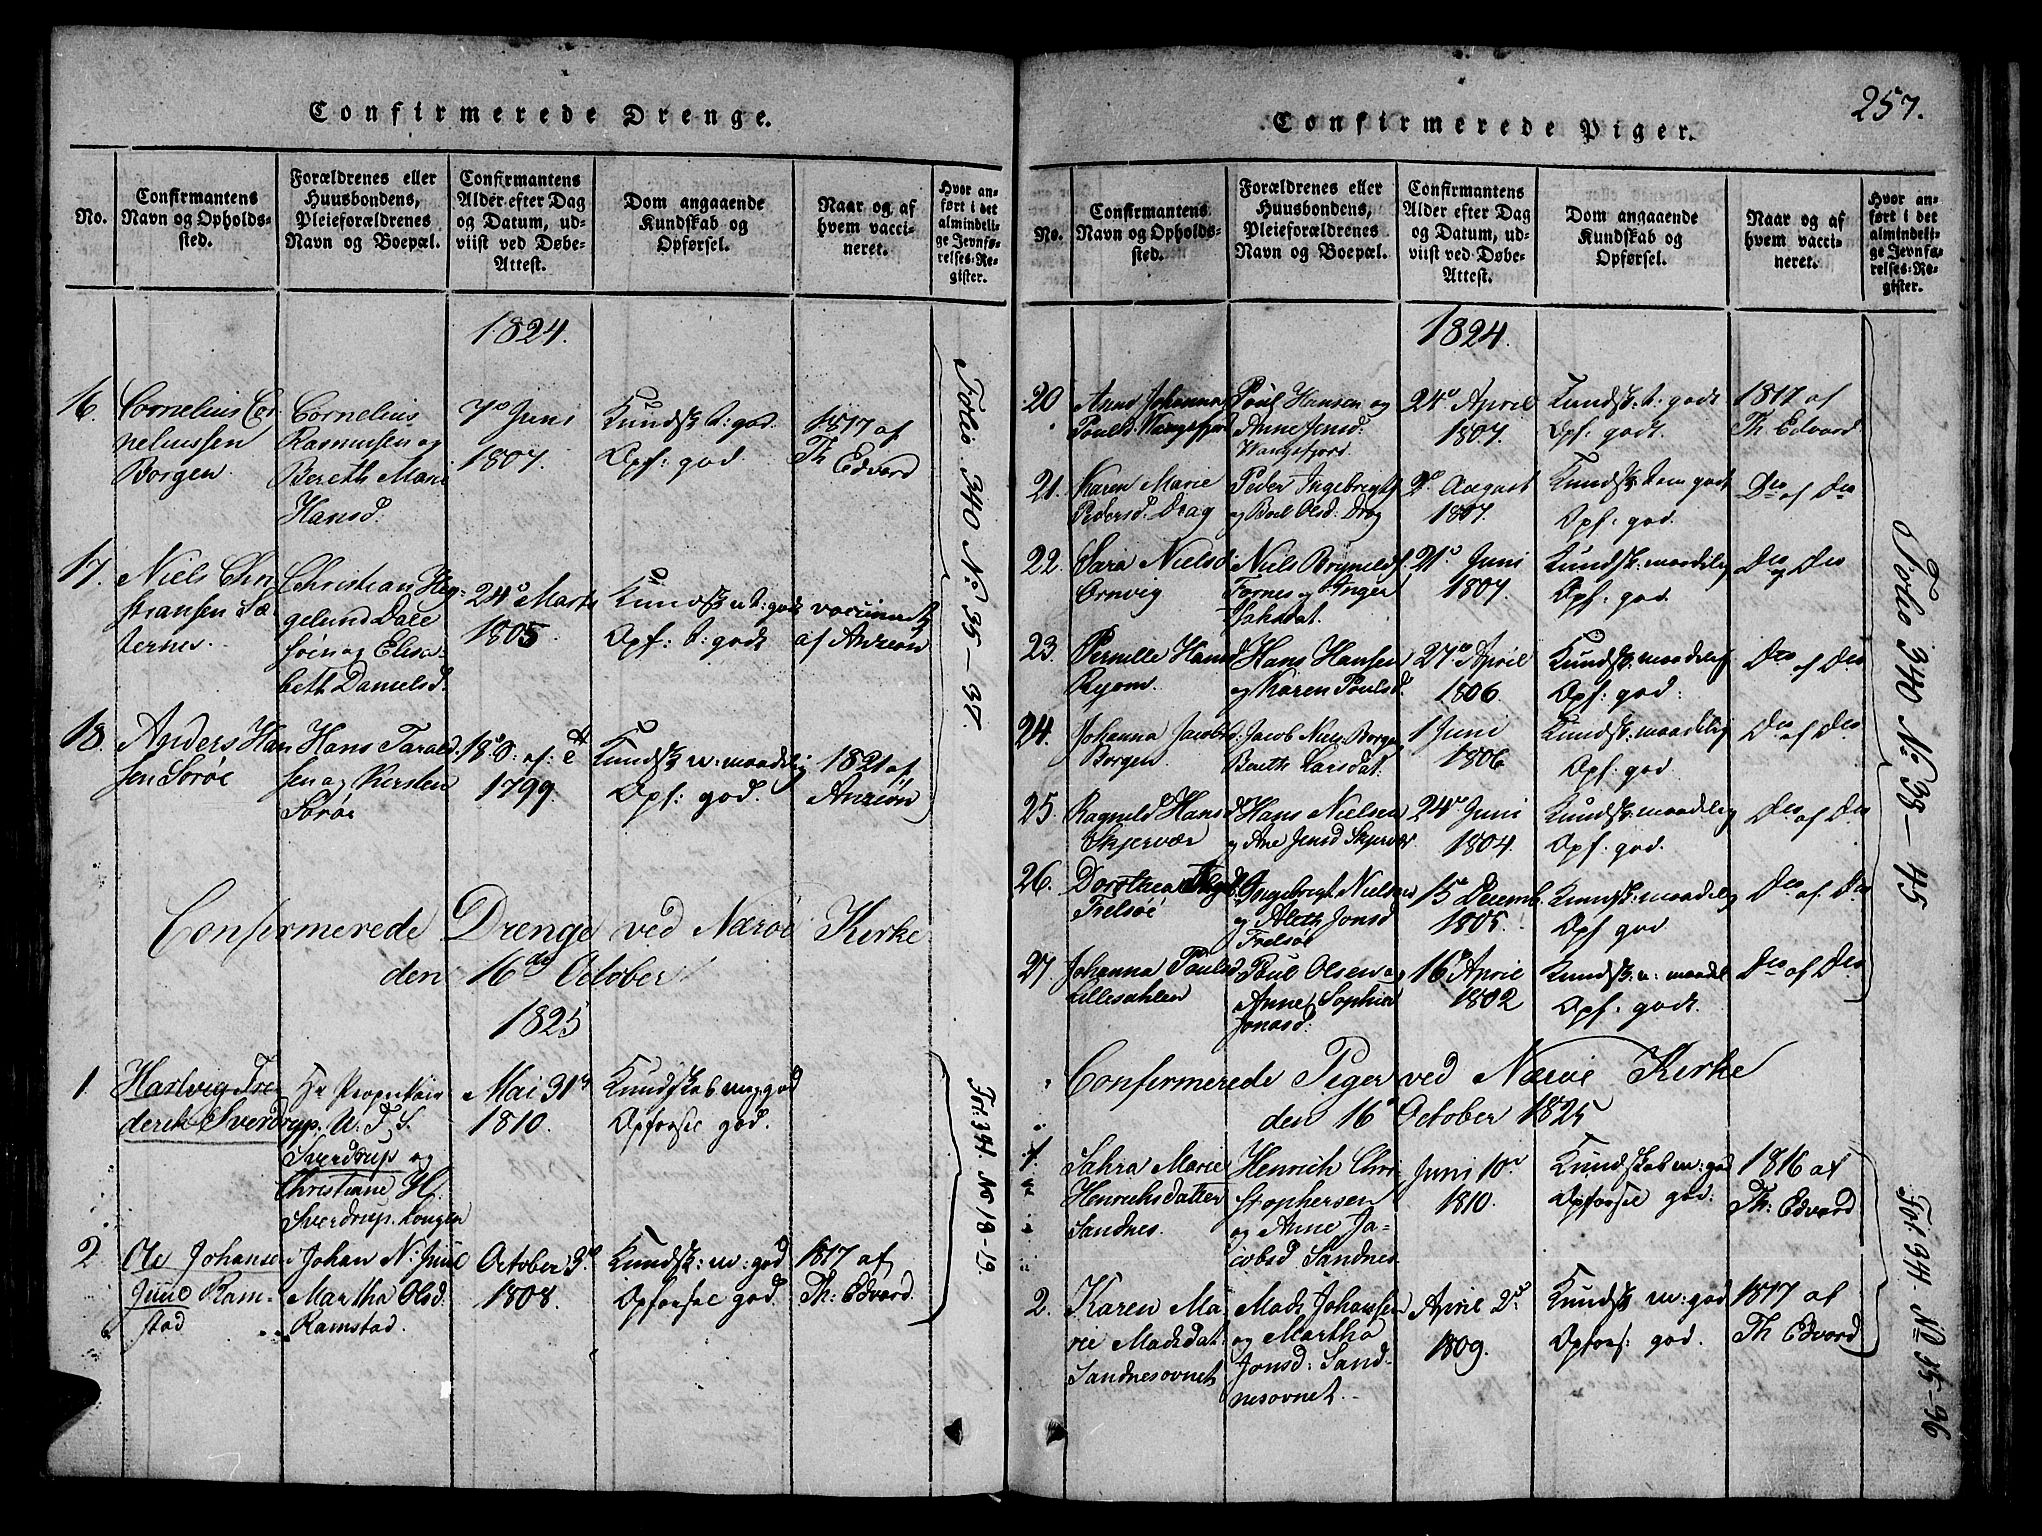 Confirmerede Drenge.
No.
Confirmantens
Navn og Opholds-
sted.
Forældrenes eller
Huusbondens,
Pleieforældrenes
Navn og Boepæl.
Confirmantens
Alder efter Dag
og Datum, ud-
viist ved Døbe-
Attest.
Dom angaaende
Kundskab og
Opførsel.
Naar og af
hvem vacci-
neret.
Hvor an-
ført i det
almindeli-
ge Jevnfø-
relses-Re-
gister.
1824.
16.
Cornelius Cor
neliussen
Borgen.
Cornelius
Rasmusen og
Bereth Mari
Hansd.
7de Juni
1807.
Kundsk t: god.
Opf: god
1817 af
Th Edvard
17.
Niels Chri
stiansen Sæ
ternes.
Christian Heg-
gelund Dale
søin og Elisa-
beth Danielsd.
24de Marts
1805.
Kundsk t: godt
Opf: t: godt
vaccineret
af Anzeon
18.
Anders Han
sen Sørøe
Hans Tarald
sen og Kirsten
Sørøe
1799.
Kundsk m: maadelig
Opf: god.
1821 af
Anzeon
Folio 340 No 35-37.
Confirmerede Drenge ved Nærøe Kirke
den 16de October
1825
1.
Hartvig Fre
derik Sverdrup.
Hr Proprietair
U. F. S.
Sverdrup og
Christiane H.
Sverdrup. Kongen
Mai 31te
1810.
Kundskab meg god
Opførsel god.
2
Ole Johansen
Juul Ram-
stad
Johan N: Juul
Martha Olsd.
Ramstad.
October 3de
1808.
Kundsk: m: god
Opførsel god.
1817 af
Th: Edvard
Fol: 344 No 18-19.
257.
Confirmerede Piger.
No.
Confirmantens
Navn og Opholds-
sted.
Forældrenes eller
Huusbondens,
Pleieforældrenes
Navn og Boepæl.
Confirmantens
Alder efter Dag
og Datum, ud-
viist ved Døbe-
Attest.
Dom angaaende
Kundskab og
Opførsel.
Naar og af
hvem vacci-
neret.
Hvor an-
ført i det
almindeli-
ge Jevnfø-
relses-Re-
gister.
1824.
20
Anne Johanna
Poulsd. Wangsfjord
Poul Hansen og
Anne Jensd.
Wangsfjord.
24de April
1807.
Kundsk: t: godt
Opf: godt.
1817 af
Th Edvard
21.
Karen Marie
Pedersd. Drag
Peder Ingebrigts
og Boel Olsd. Drag
2de August
1807.
Kundsk: tem godt
Opf: god.
Do af Do
22.
Sara Nielsd
Ornvig
Niels Brynilds.
Fornes og Inger
21de Juni
1807
Kundsk: maadelig
Opf: god.
Do af Do
23.
Pernille Hansd
Ryom.
Hans Hansen
og Karen Poulsd.
27de April
1806.
Kundsk: maadelig
Opf: god.
Do af Do
24.
Johanna Jacobsd.
Borgen
Jacob Niels. Borgen
Bereth Larsdat.
1 Juni
1806
Kundsk: maadelig
Opf: god
Do af Do
25.
Ragnild Hansd
Skjervær
Hans Nielsen
og Ane Jensd Skjervær
24de Juni
1804
Kundsk: maadelig
Opf: god.
Do af Do
26.
Dorthea Inge
Frelsøe
Ingebrigt Nielsen
og Aleth Jonsd
Frelsøe
15de Decemb
1805.
Kundsk: maadelig
Opf god
Do af Do
27
Johanna Poulsd
Lillesahlen
Poul Olsen og
Anne Sophia
Jonasd.
16de April
1802
Kundsk: m: maadel
Opf: godt.
Do af Do
Folio 340 No 38-45
Confirmerede Piger ved Nærøe Kirke
den 16de October 1825
1.
Sahra Marie
Henrichsdatter
Sandnes.
Henrich Chri
stophersen
og Anne Ja-
cobsd Sandnes.
Juni 10de
1810.
Kundskab m: god
Opførsel god.
1816 af
Th: Edvard
2.
Karen Ma
rie Madsdat.
Sandnesovnet
Mads Johansen
og Martha
Jonsd: Sand-
nesovnet.
April 2de
1809.
Kundsk m: god
Opførs: god.
1817 af
Th Edvard
Fol: 344. No 35-36